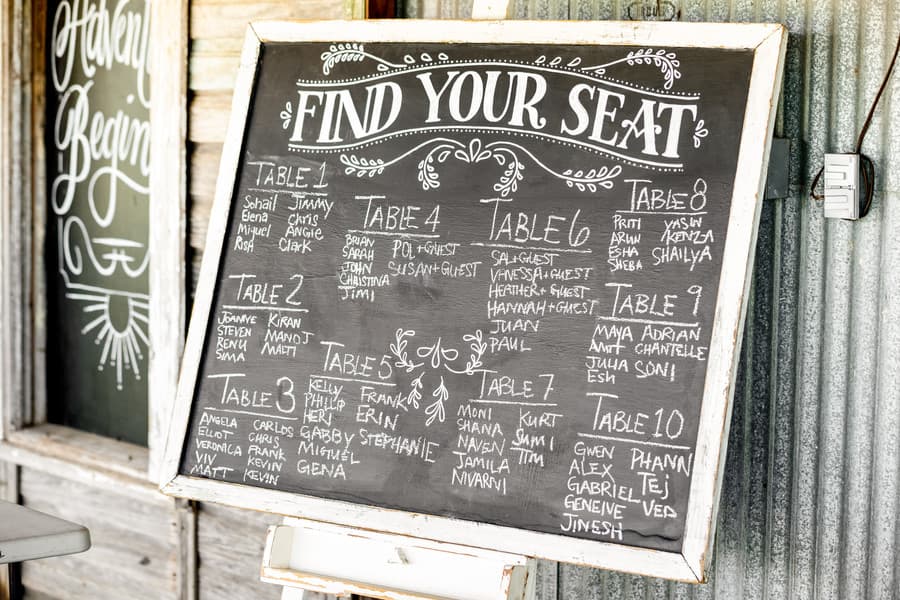 Begin
FIND YOUR SEAT
TABLE 1
Sohail Jimmy
Elena Chris
Miguel Angie
Rish Clark
TABLE 2
JOANNE KIRAN
STEVEN MANOJ
RENU MATT
SIMA
TABLE 3
ANGELA CARLOS
ELLIOT CHRIS
VERONICA FRANK
VIV KEVIN
MATT KEVIN
TABLE 4
BRIAN POL+GUEST
SARAH SUSAN+GUEST
JOHN
CHRISTINA
JIMI
TABLE 5
KELLY FRANK
PHILLIP ERIN
HERI STEPHANIE
GABBY
MIGUEL
GENA
TABLE 6
SAL+GUEST
VANESSA+GUEST
HEATHER+GUEST
HANNAH+GUEST
JUAN
PAUL
TABLE 7
MONI KURT
SHANA SUMI
NAVEN TIM
JAMILA
NIVARNI
TABLE 8
PRITI YASIN
ARUN KENZA
ESHA SHAILYA
SHEBA
TABLE 9
MAYA ADRIAN
AMIT CHANTELLE
JULIA SONI
ESH
TABLE 10
GWEN PHANN
ALEX TEJ
GABRIEL VED
GENEIVE
JINESH